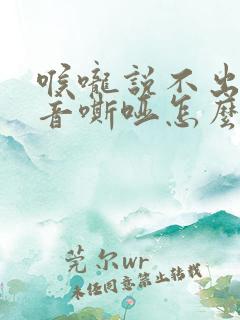 喉嚨說不出
音嘶啞怎麼
莞尔wr
未经同意禁止转载